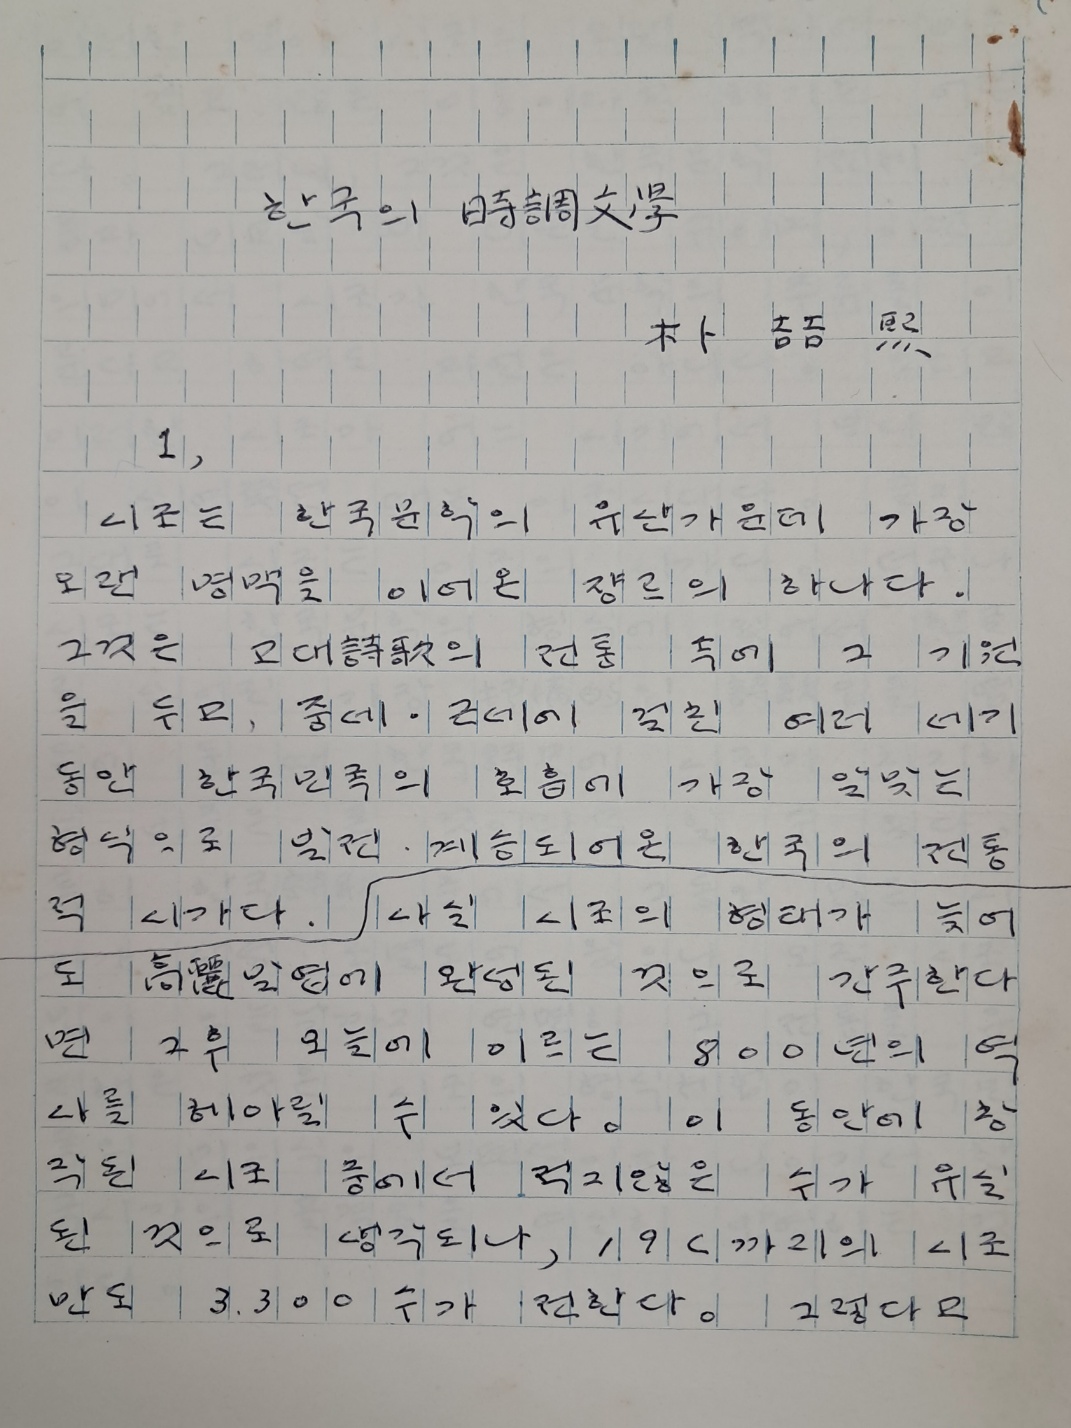 한국의 時調文學
朴 喆 熙
1,
시조는 한국문학의 유산가운데 가장
오랜 명맥을 이어온 쟝르의 하나다.
그것은 고대詩歌의 전통 속에 그 기원
을 두고, 중세·근세에 걸친 여러 세기
동안 한국민족의 호흡에 가장 알맞는
형식으로 발전·계승되어온 한국의 전통
적 시가다. 사실 시조의 형태가 늦어
도 高麗말엽에 완성된 것으로 간주한다
면 그후 오늘에 이르는 800년의 역
사를 헤아릴 수 있다. 이 동안에 창
작된 시조 중에서 적지않은 수가 유실
된 것으로 생각되나, 19C까지의 시조
만도 3.300수가 전한다. 그렇다고